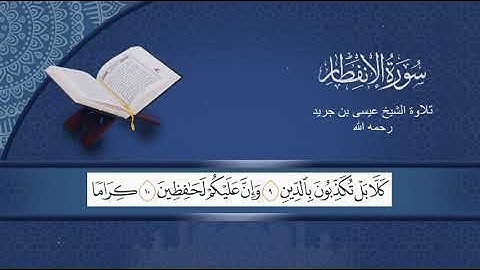 سُورَةُ الإِنفِطَار
تلاوة الشيخ عيسى بن جريد
رحمه الله
كَلَّا بَلْ تُكَذِّبُونَ بِالدِّينِ ٩ وَإِنَّ عَلَيْكُمْ لَحَافِظِينَ ١٠ كِرَامًا